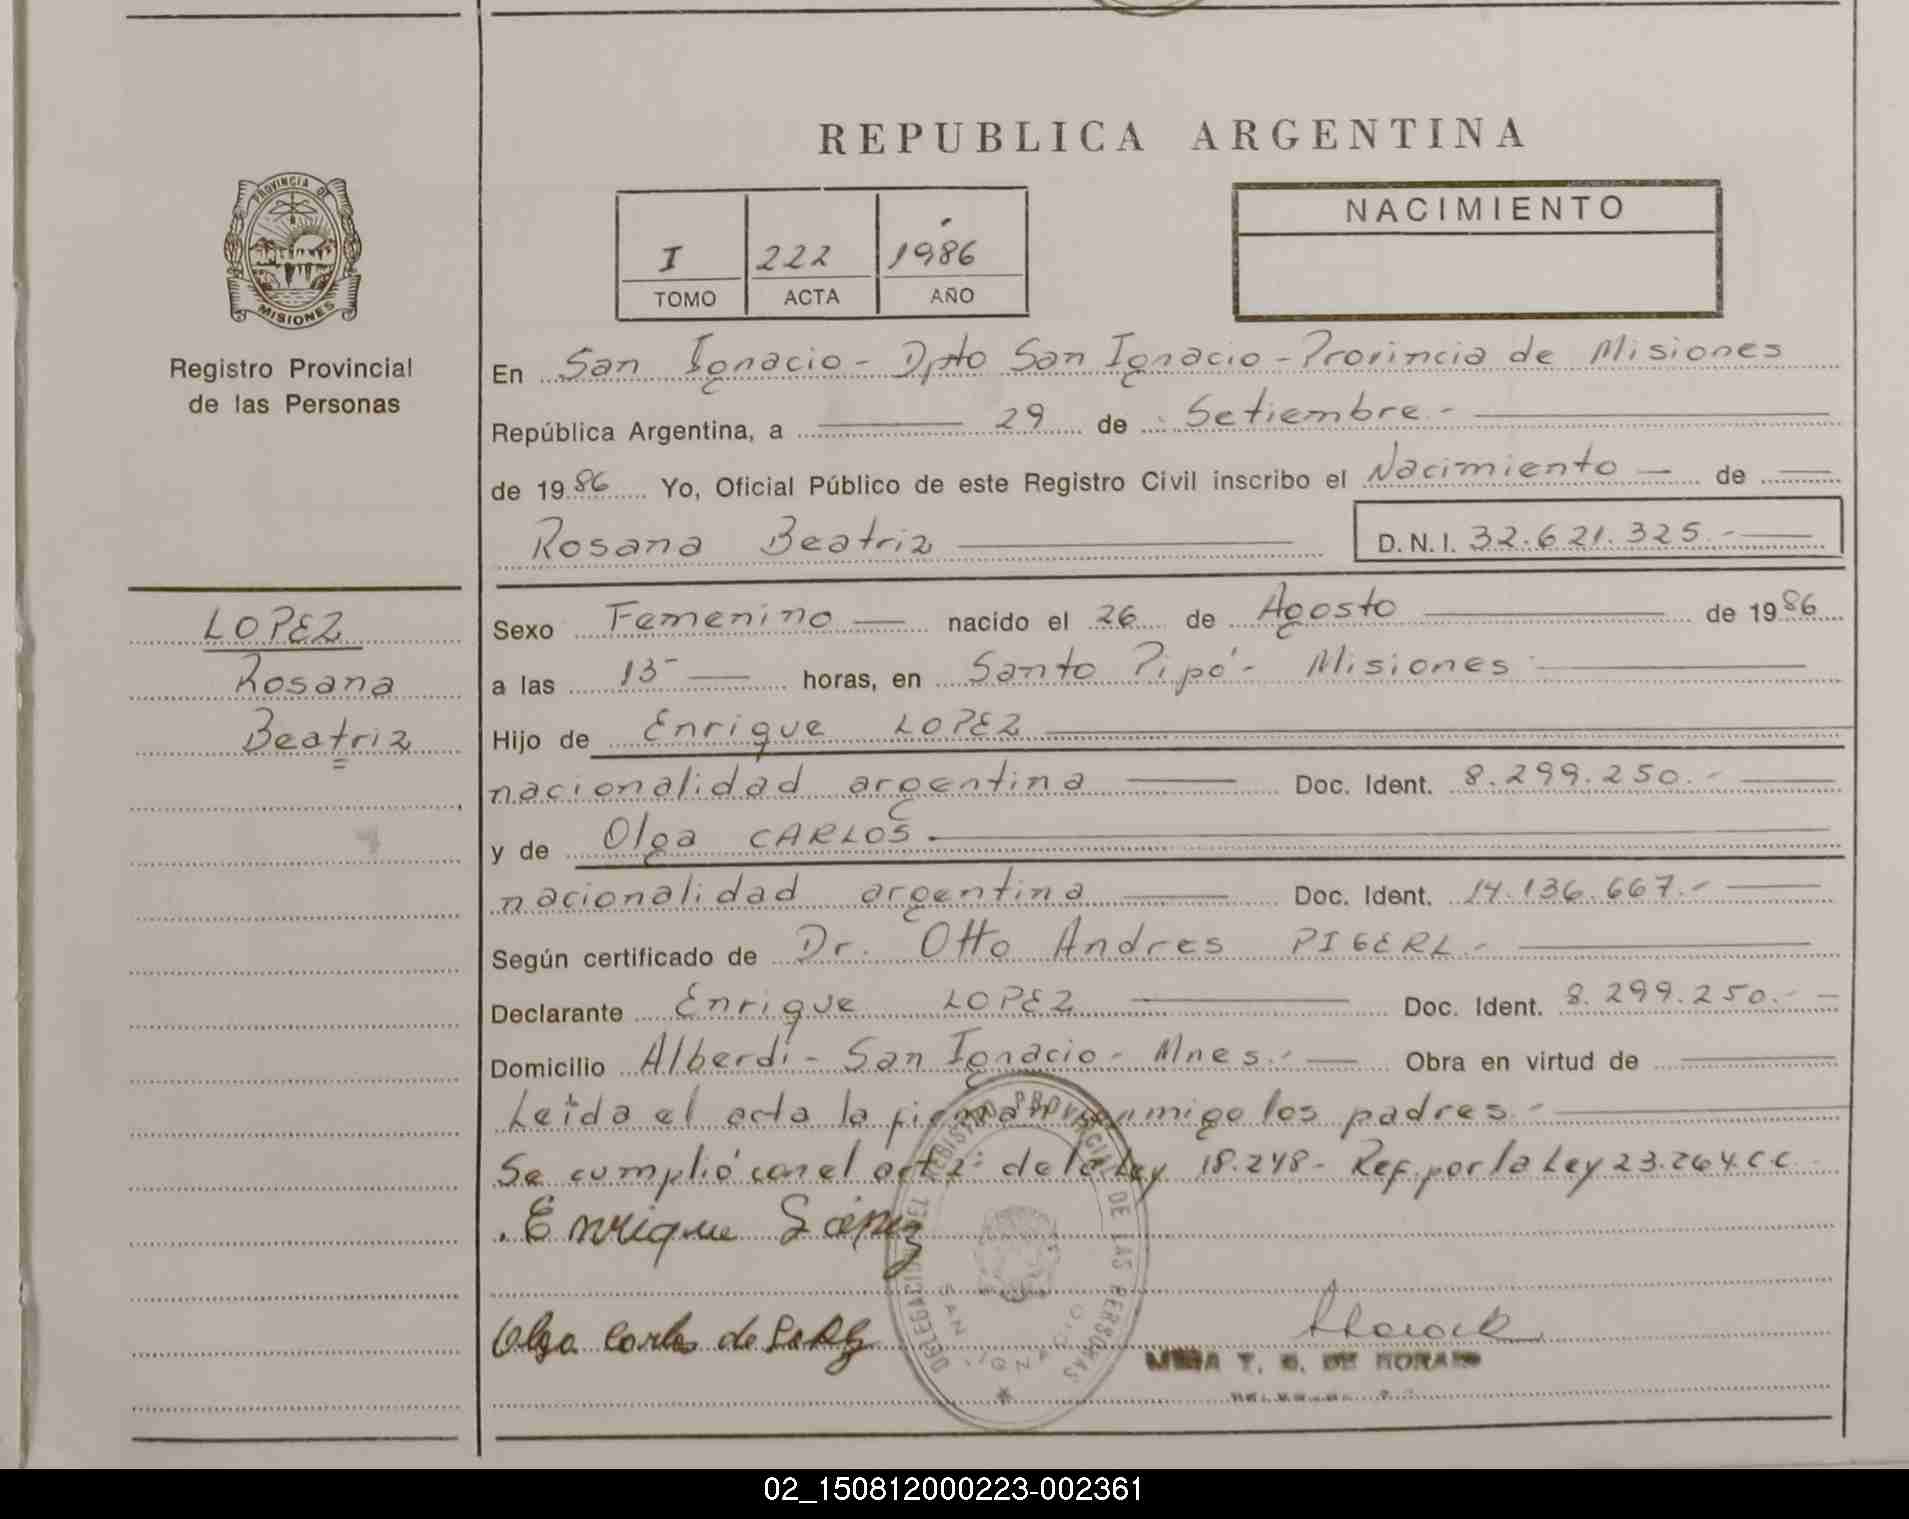 REPUBLICA ARGENTINA
PROVINCIA DE
MISIONES
Registro Provincial
de las Personas
I 222 1986
TOMO ACTA AÑO
NACIMIENTO
En San Ignacio - Dpto San Ignacio - Provincia de Misiones
República Argentina, a 29 de Setiembre.-
de 1986 Yo, Oficial Público de este Registro Civil inscribo el Nacimiento — de —
Rosana Beatriz D.N.I. 32.621.325.-
LOPEZ
Rosana
Beatriz
Sexo Femenino — nacido el 26 de Agosto de 1986
a las 13- — horas, en Santo Pipó - Misiones
Hijo de Enrique LOPEZ
nacionalidad argentina — Doc. Ident. 8.299.250.-
y de Olga CARLOS.
nacionalidad argentina — Doc. Ident. 14.136.667.-
Según certificado de Dr. Otto Andres PIGERL.-
Declarante Enrique LOPEZ Doc. Ident. 8.299.250.-
Domicilio Alberdi - San Ignacio - Mnes.- — Obra en virtud de
Leída el acta la firman conmigo los padres.-
Se cumplió con el art 2: de la Ley 18.248- Ref. por la Ley 23.264 CC
Enrique López
Olga Carlos de
DELEGACION DEL REGISTRO PROVINCIAL DE LAS PERSONAS
SAN IGNACIO
T. DE
02_150812000223-002361